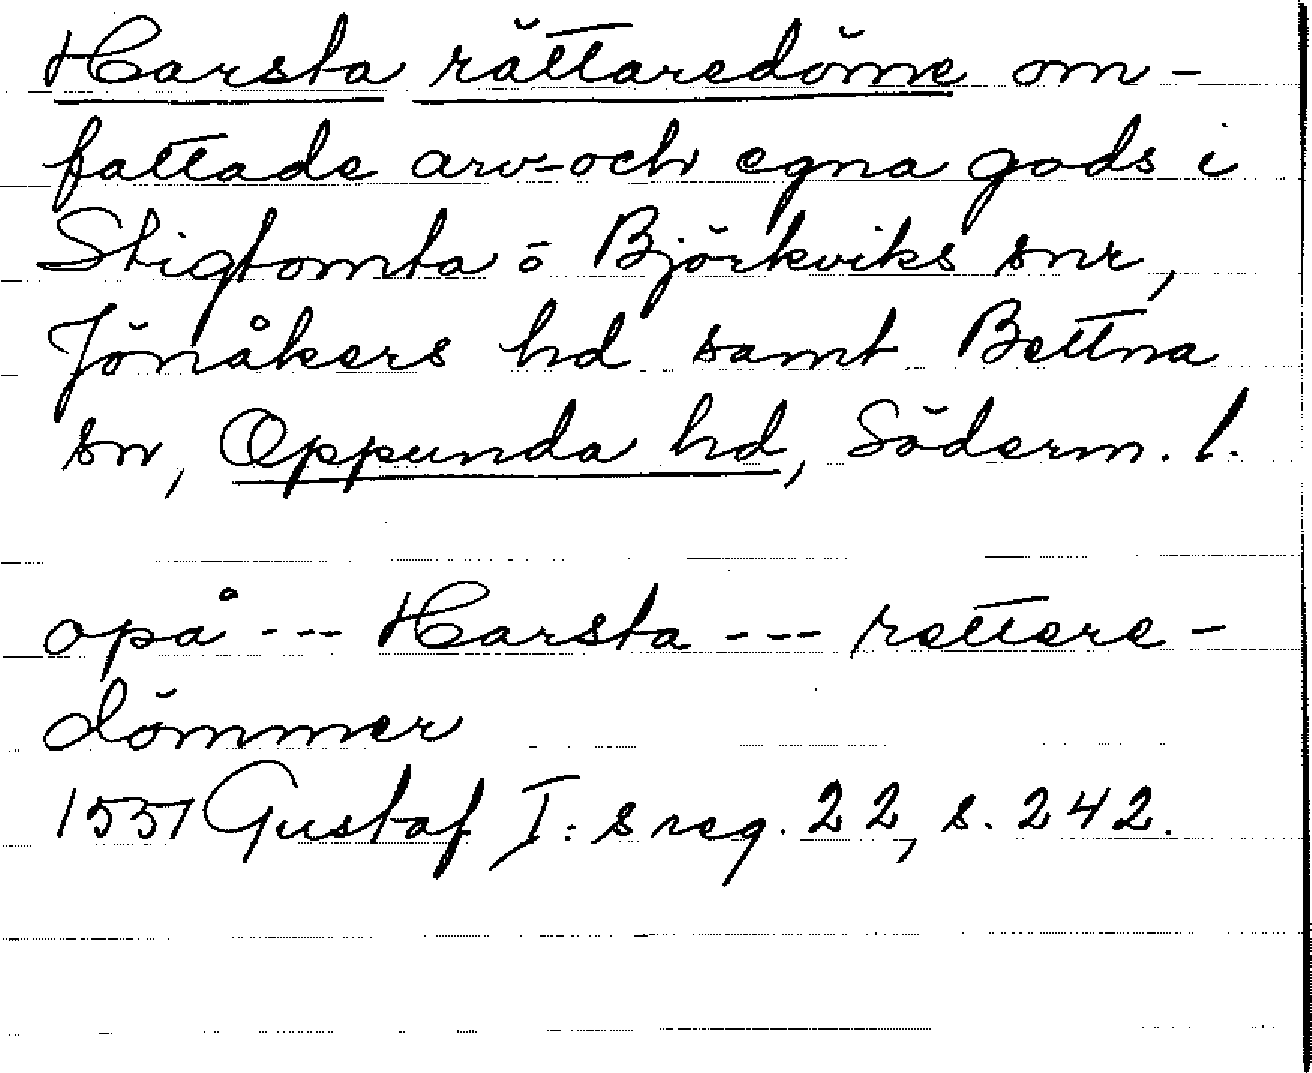 Harsta rättaredöme om-
fattade arv- och egna gods i
Stigtomta o Björkviks snr,
Jönåkers hd samt Bettna
sn, Oppunda hd, Söderm. l.
opå --- Harsta --- rettere-
dömmer
1551 Gustaf I:s reg. 22, s. 242.